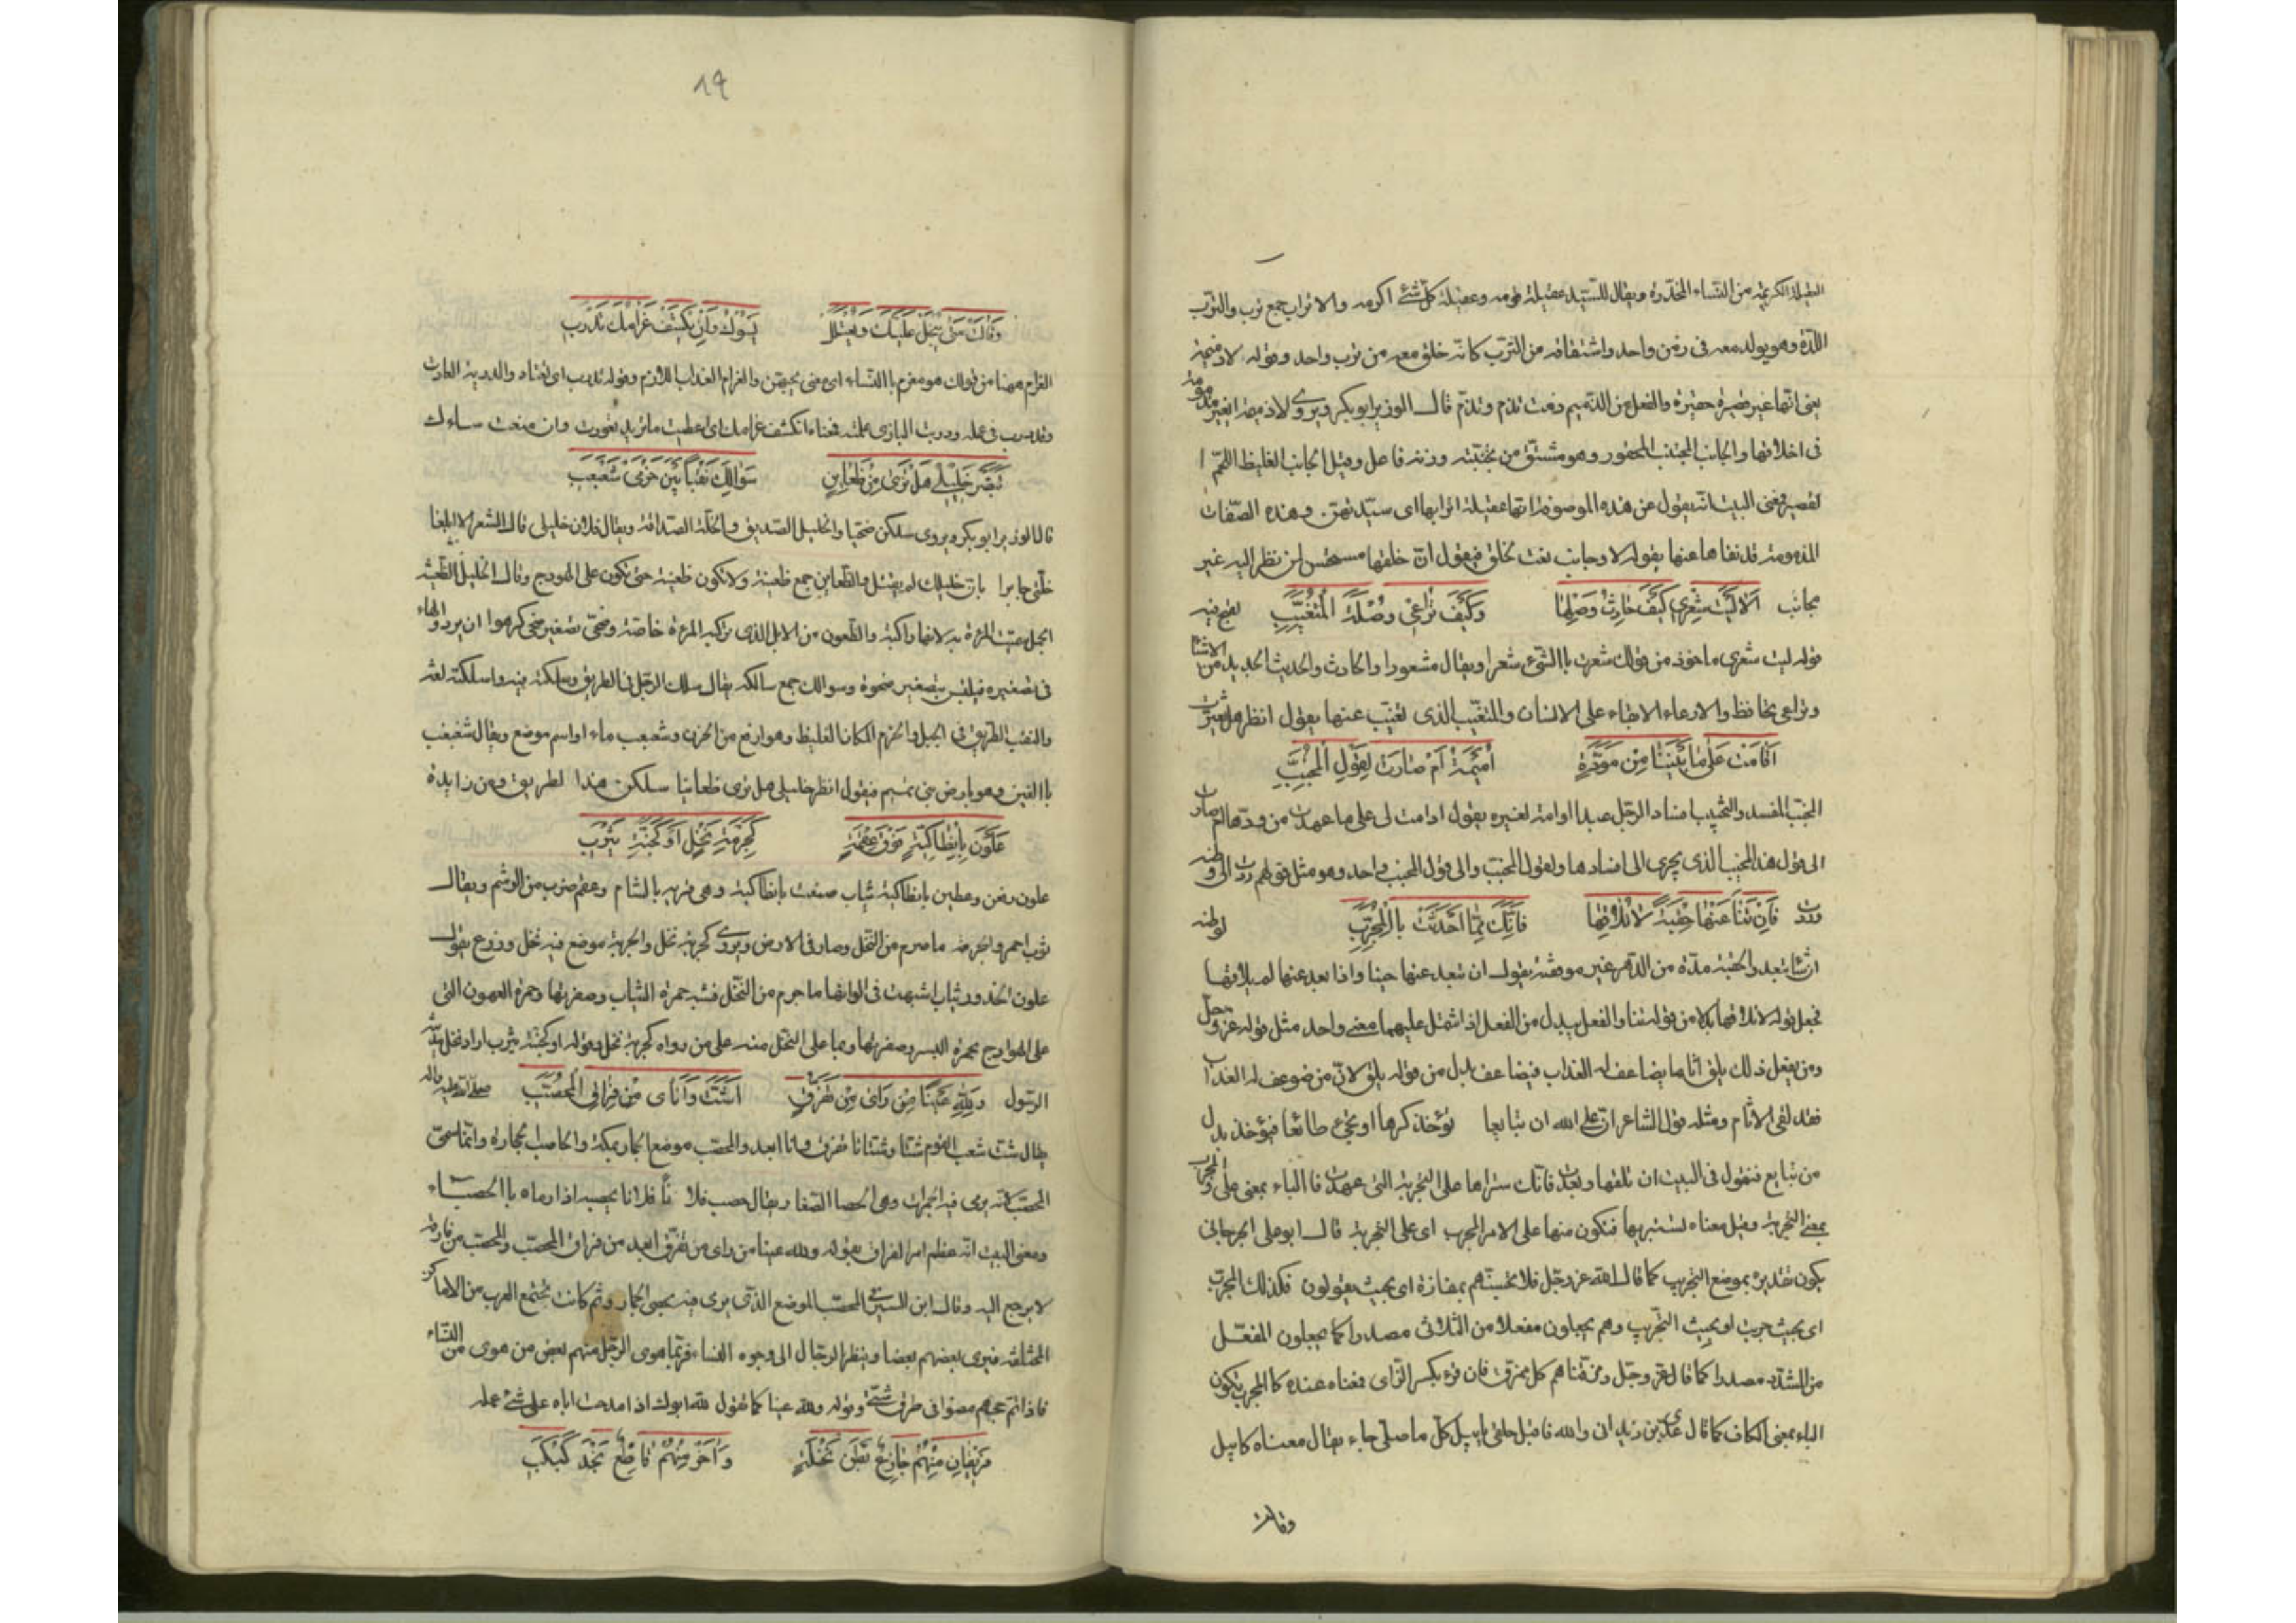 العقيلة الكريمة من النساء المخدرة ويقال للسيد عقيلة قومه وعقيلة كل شئ اكرمه والاتراب جمع ترب والترب
اللدة وهو يولد معه فى زمن واحد واشتقاقه من الترب كانه خلق معه من ترب واحد وقوله لا دميمة
يعنى انها غير قصيرة حقيرة والفعل من الدميم دممت تدم وتدم قال الوزير ابو بكر ويروى لا ذميمة اى غير مذمومة
فى اخلاقها والجانب المجتنب المحقور وهو مشتق من تجنبته وزنه فاعل وقيل الجانب الغليظ اللحم ا
لقصير فمعنى البيت انه يقول عن هذه الموصوفة انها عقيلة اترابها اى سيدتهن وهذه الصفات
المذمومة قد نفاها عنها بقوله لا وجانب نعت لخلق فيقول ان خلقها مستحسن لمن نظر اليه غير
مجانب اَلَا لَيْتَ شِعْرِي كَيْفَ حَادِثُ وَصْلِهَا وَكَيْفَ تُرَاعِى وُصْلَةَ الْمُتَغَيِّبِ
قوله ليت شعرى ماخوذ من قولك شعرت باالشىء شعرا ويقال مشعورا والحادث والحديث الجديد من الاشيا
وتراعى تحافظ والارعاء الابقاء على الانسان والمتغيب الذى تغيب عنها يقول انظر هل تغيرت
اَقَامَتْ عَلَى مَا بَيْنَنَا مِنْ مَوَدَّةٍ اُمَيْمَةُ اَمْ صَارَتْ لِقَوْلِ الْمُخَبِّبِ
المخبب المفسد والتخبيب افساد الرجل عبدا او امة لغيره يقول ادامت لى على ما عهدت من ودها ام صارت
الى قول هذا المخبب الذى يجرى الى افسادها ولقول المخبب والى قول المخبب واحد وهو مثل قولهم
فَاِنْ تَنْأَ عَنْهَا حِقْبَةً لَا تُلَاقِهَا فَاِنَّكَ مِمَّا اَحْدَثَتْ بِالْمُجَرِّبِ
تبعد والحقبة مدة من الدهر غير موقتة يقول ان تبعد عنها حينا واذا بعد عنها لم يلاقها
فجعل قوله لا تلاقها بدلا من قوله تنا والفعل يبدل من الفعل اذا اشتمل عليهما معنى واحد مثل قوله عز وجل
ومن يفعل ذلك يلق اثاما يضاعف له العذاب فيضاعف بدل من قوله يلق لان من ضوعف له العذاب
فقد لقى الاثام ومثله قول الشاعر ان على الله ان تبايعا تؤخذ كرها او تجئ طائعا فتؤخذ بدل
من تبايع فنقول فى البيت ان تلقها وبعدت فانك ستراها على التجربة التى عهدت فاالباء بمعنى على والمجرب
بمعنى التجربة وقيل معناه فتكون منها على الامر المجرب اى على التجربة قال ابو على الجرجانى
يكون تقديره بموضع التجريب كما قال الله عز وجل فلا تحسبنهم بمفازة اى بحيث يفوزون فكذلك المجرب
اى بحيث جربت او بحيث التجريب وهم يجعلون مفعلا من الثلاثى مصدرا كما يجعلون المفعل
من المشدد مصدرا كما قال عز وجل ومزقناهم كل ممزق فان قرء بكسر الراى فمعناه عنده كالمجرب تكون
الباء بمعنى الكاف كما قال عدى بن زيد انى والله فاقبل حلفى بابيل كل ما صلى جاء يقال معناه كابيل
وقالت
٨٩
وَقَالَتْ مَتَى يُبْخَلْ عَلَيْكَ وَيُعْتَلَلْ يَسُؤْكَ وَاِنْ يُكْشَفْ غَرَامُكَ تَدْرَبِ
الغرام ههنا من قولك هو مغرم باالنساء اى متى يحبهن والغرام العذاب اللازم وقوله تدرب اى تعتاد والدربة العادة
وقد درب فى عمله ودربت البازى علمته فمعناه ان تكشف غرامك اى اعطيت ما تريد تعودت وان منعت ساءك
تَبَصَّرْ خَلِيلِى هَلْ تَرَى مِنْ ظَعَائِنٍ سَوَالِكَ نَقْبًا بَيْنَ حَزْمَىْ شَعَبْعَبِ
قال الوزير ابو بكر ويروى سلكن ضحيا والخليل الصديق والخلة الصداقة ويقال فلان خليلى قال الشعر الا ابلغا
خلتى جابرا بان خليلك لم يقتل والظعاين جمع ظعينة ولا تكون ظعينة حتى تكون على الهودج وقال الخليل الظعينة
الجمل سميت المرءة به لانها راكبته والظعون من الابل الذى تركبه المرءة خاصة وضحى تصغير ضحى كرهوا ان يردوا الهاء
فى تصغيره فيلتبس بتصغير ضحوة وسوالك جمع سالكه يقال سلك الرجل فى الطريق وسلكته فيه واسلكته لغة
والنقب الطريق فى الجبل والحزم المكان الغليظ وهو ارفع من الحزن وشعبعب ماء او اسم موضع ويقال شغبغب
باالغين وهو بارض بنى تميم فيقول انظر خليلى هل ترى ظعائنا سلكن هذا لطريق ومن زايدة
عَلَوْنَ بِاَنْطَاكِيَّةٍ فَوْقَ عِقْمَةٍ كَجِرْمَةِ نَخْلٍ اَوْ كَجَنَّةِ يَثْرِبِ
علون رفعن وعطين بانطاكية ثياب صنعت بانطاكية وهى قرية باالشام وعقمة ضرب من الوشم ويقال
ثوب احمر والجرمة ما صرم من النخل وصار فى الارض ويروى كجربة نخل والجربة موضع فيه نخل وزرع يقول
علون الخدور ثياب اشبهت فى الوانها ما جرم من النخل فشبه حمرة الثياب وصفرتها وحمرة العهون التى
على الهوادج بحمرة البسر وصفرتها وبما على النخل منه على من رواه كجربة نخل وقوله او كجنة يثرب اراد نخل مدينة
الرسول وَلِلّهِ عَيْنَا مَنْ رَاَى مِنْ تَفَرُّقٍ اَشَتَّ وَاَنْأَى مِنْ فِرَاقِ الْمُحَصَّبِ صلى الله عليه واله
يقال شت شعب القوم شتا وشتاتا تفرق وانا ابعد والمحصب موضع الجمار بمكة والحاصب الحجارة وانما سمى
المحصب لانه يرمى فيه الجمرات وهى الحصا الصغار ويقال حصب فلا نا فلانا يحصبه اذا رماه باالحصباء
ومعنى البيت انه عظم امر الفراق بقوله ولله عينا من راى من تفرق ابعد من فراق المحصب والمحصب من فارقه
لا يرجع اليه وقال ابن السيرافى المحصب الموضع الذى يرمى فيه بحصى الجمار وثم كانت تجتمع العرب من الاماكن
المختلفة فيرى بعضهم بعضا وينظر الرجال الى وجوه النساء فربما هوى الرجل منهم بعض من هوى من النساء
فاذا تم حجهم مضوا فى طرق شتى وقوله ولله عينا كما تقول لله ابوك اذا مدحت اباه على شئ عمله
فَرِيقَانِ مِنْهُمْ جَازِعٌ بَطْنَ نَخْلَةٍ وَاٰخَرُ مِنْهُمْ قَاطِعٌ نَجْدَ كَبْكَبِ